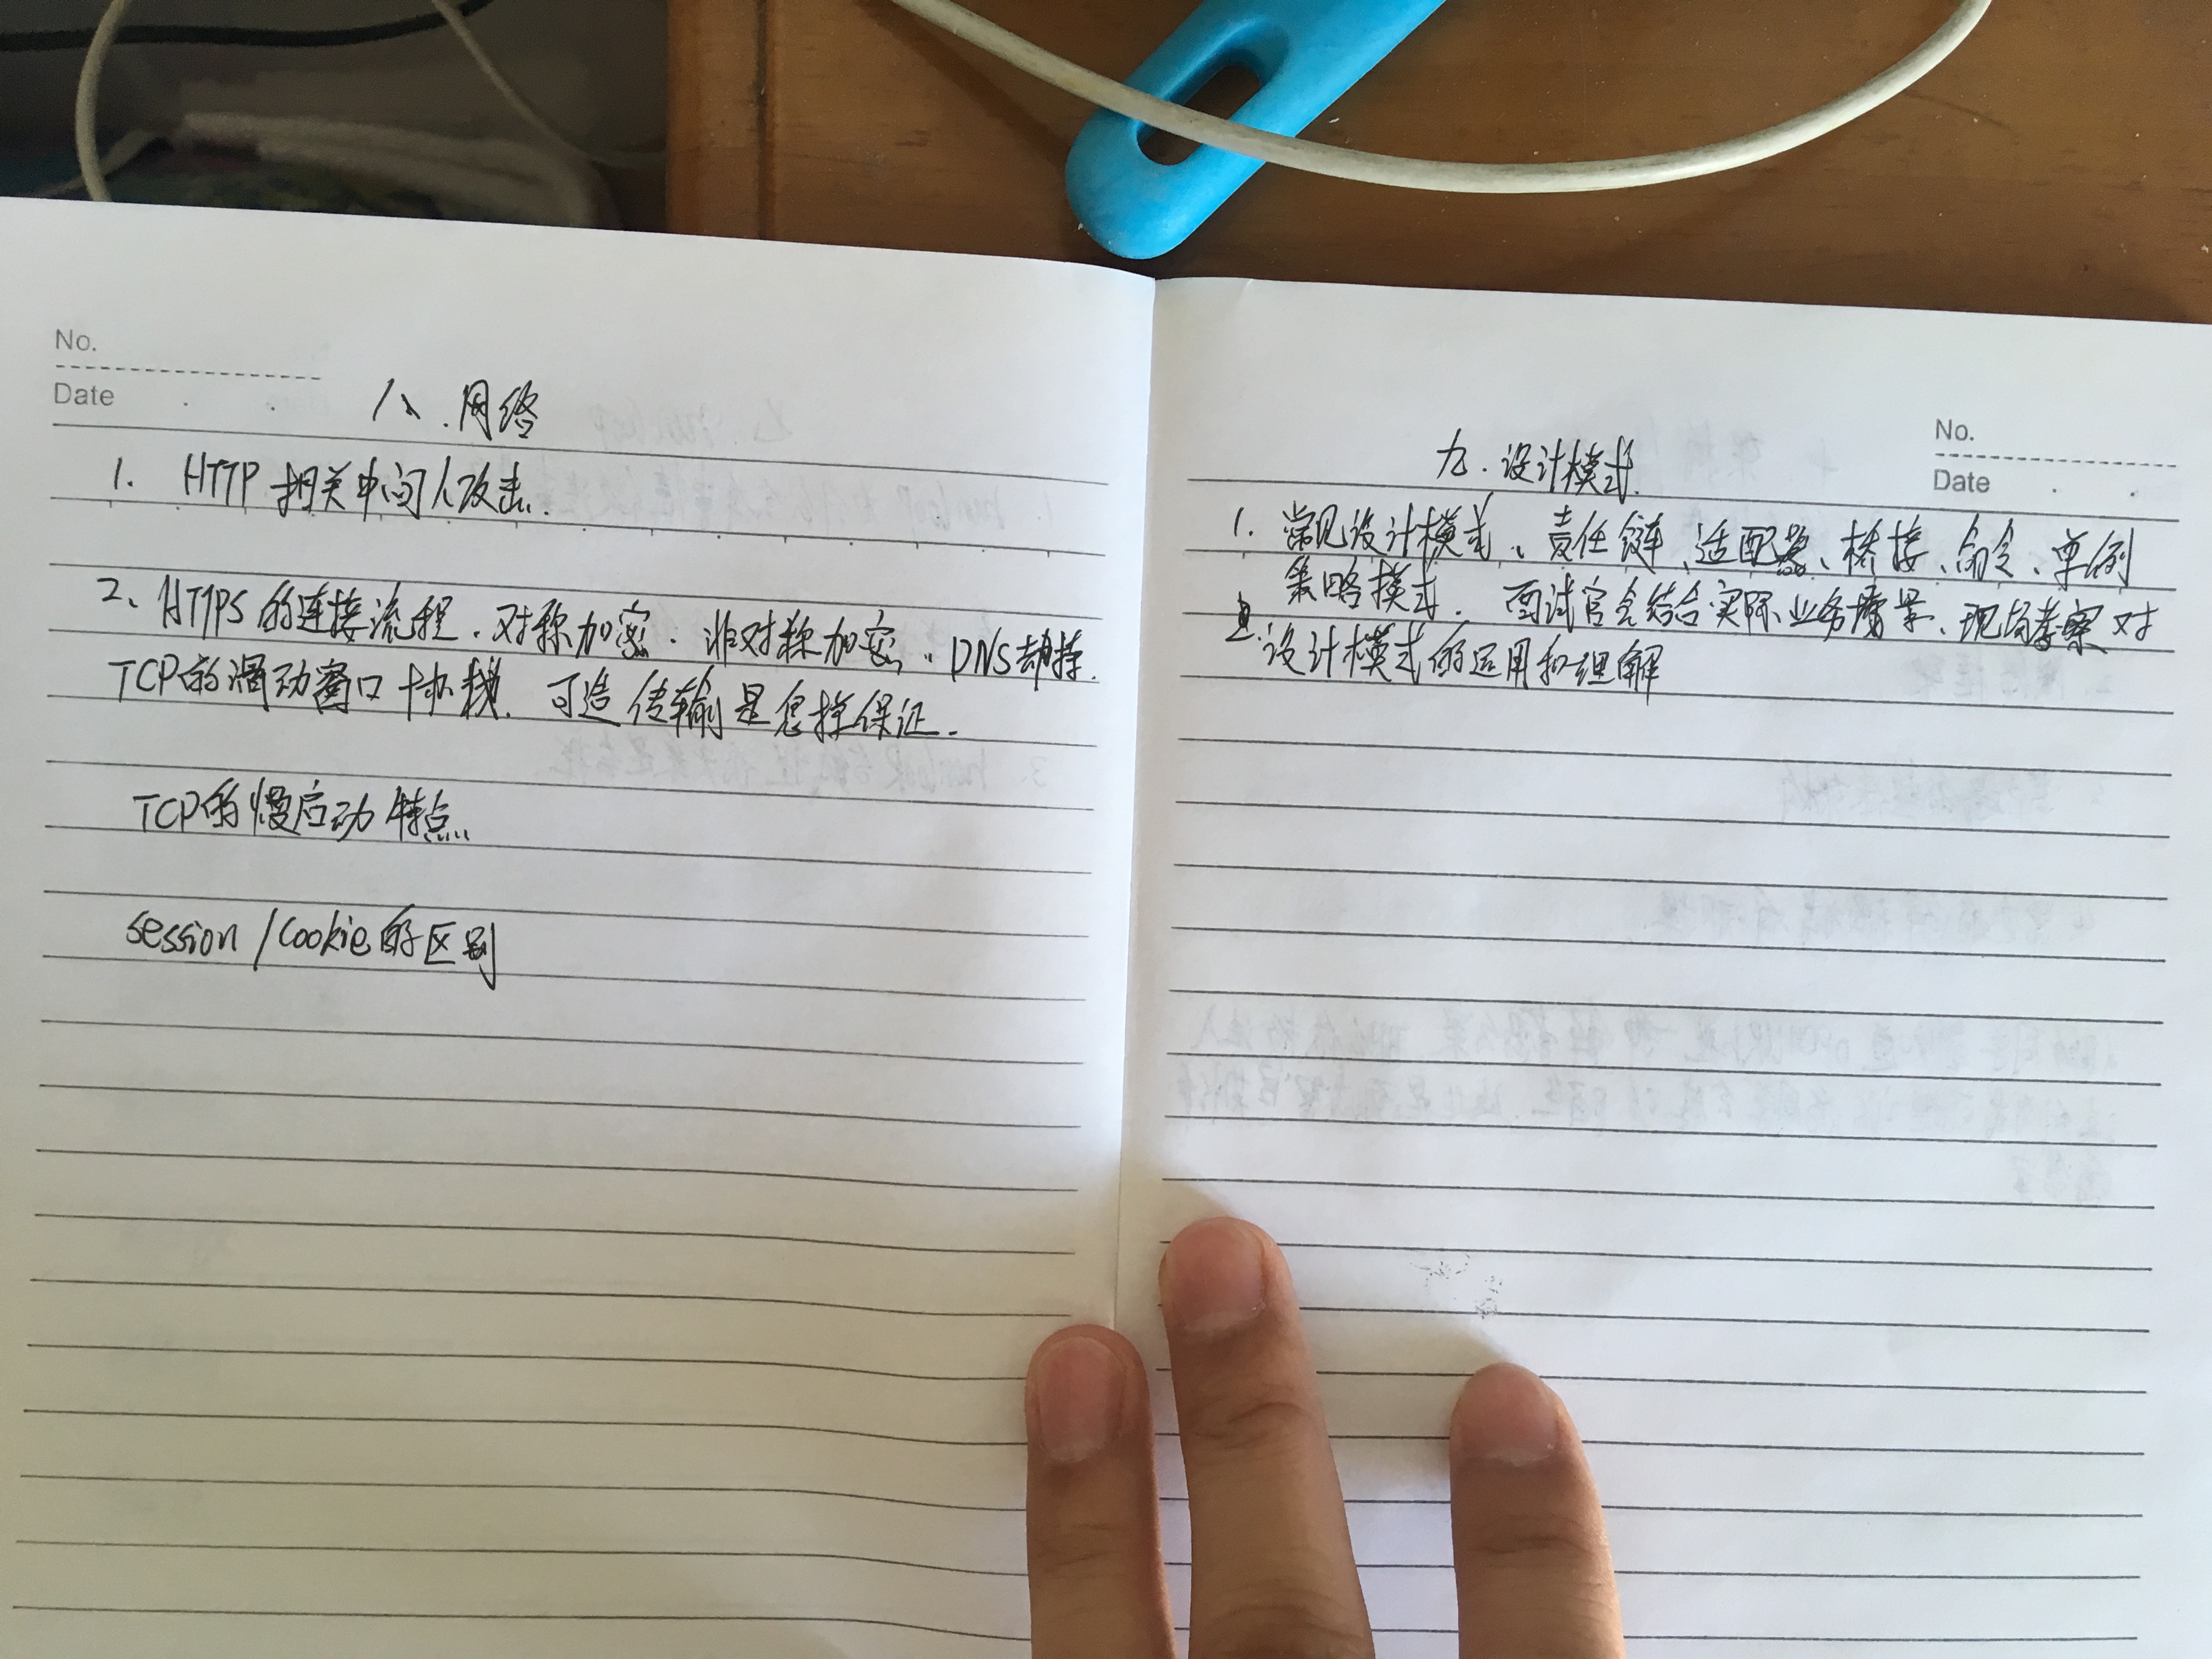 No.
Date
八、网络
1. HTTP 相关中间人攻击.
2、HTTPS 的连接流程. 对称加密. 非对称加密、DNS劫持.
TCP的滑动窗口机制. 可造传输是怎样保证.
TCP的慢启动特点
session / cookie的区别
No.
Date
九.设计模式
1. 常见设计模式、责任链、适配器、桥接、命令、单例
策略模式. 面试官会结合实际业务场景、现场考察对
设计模式的运用和理解